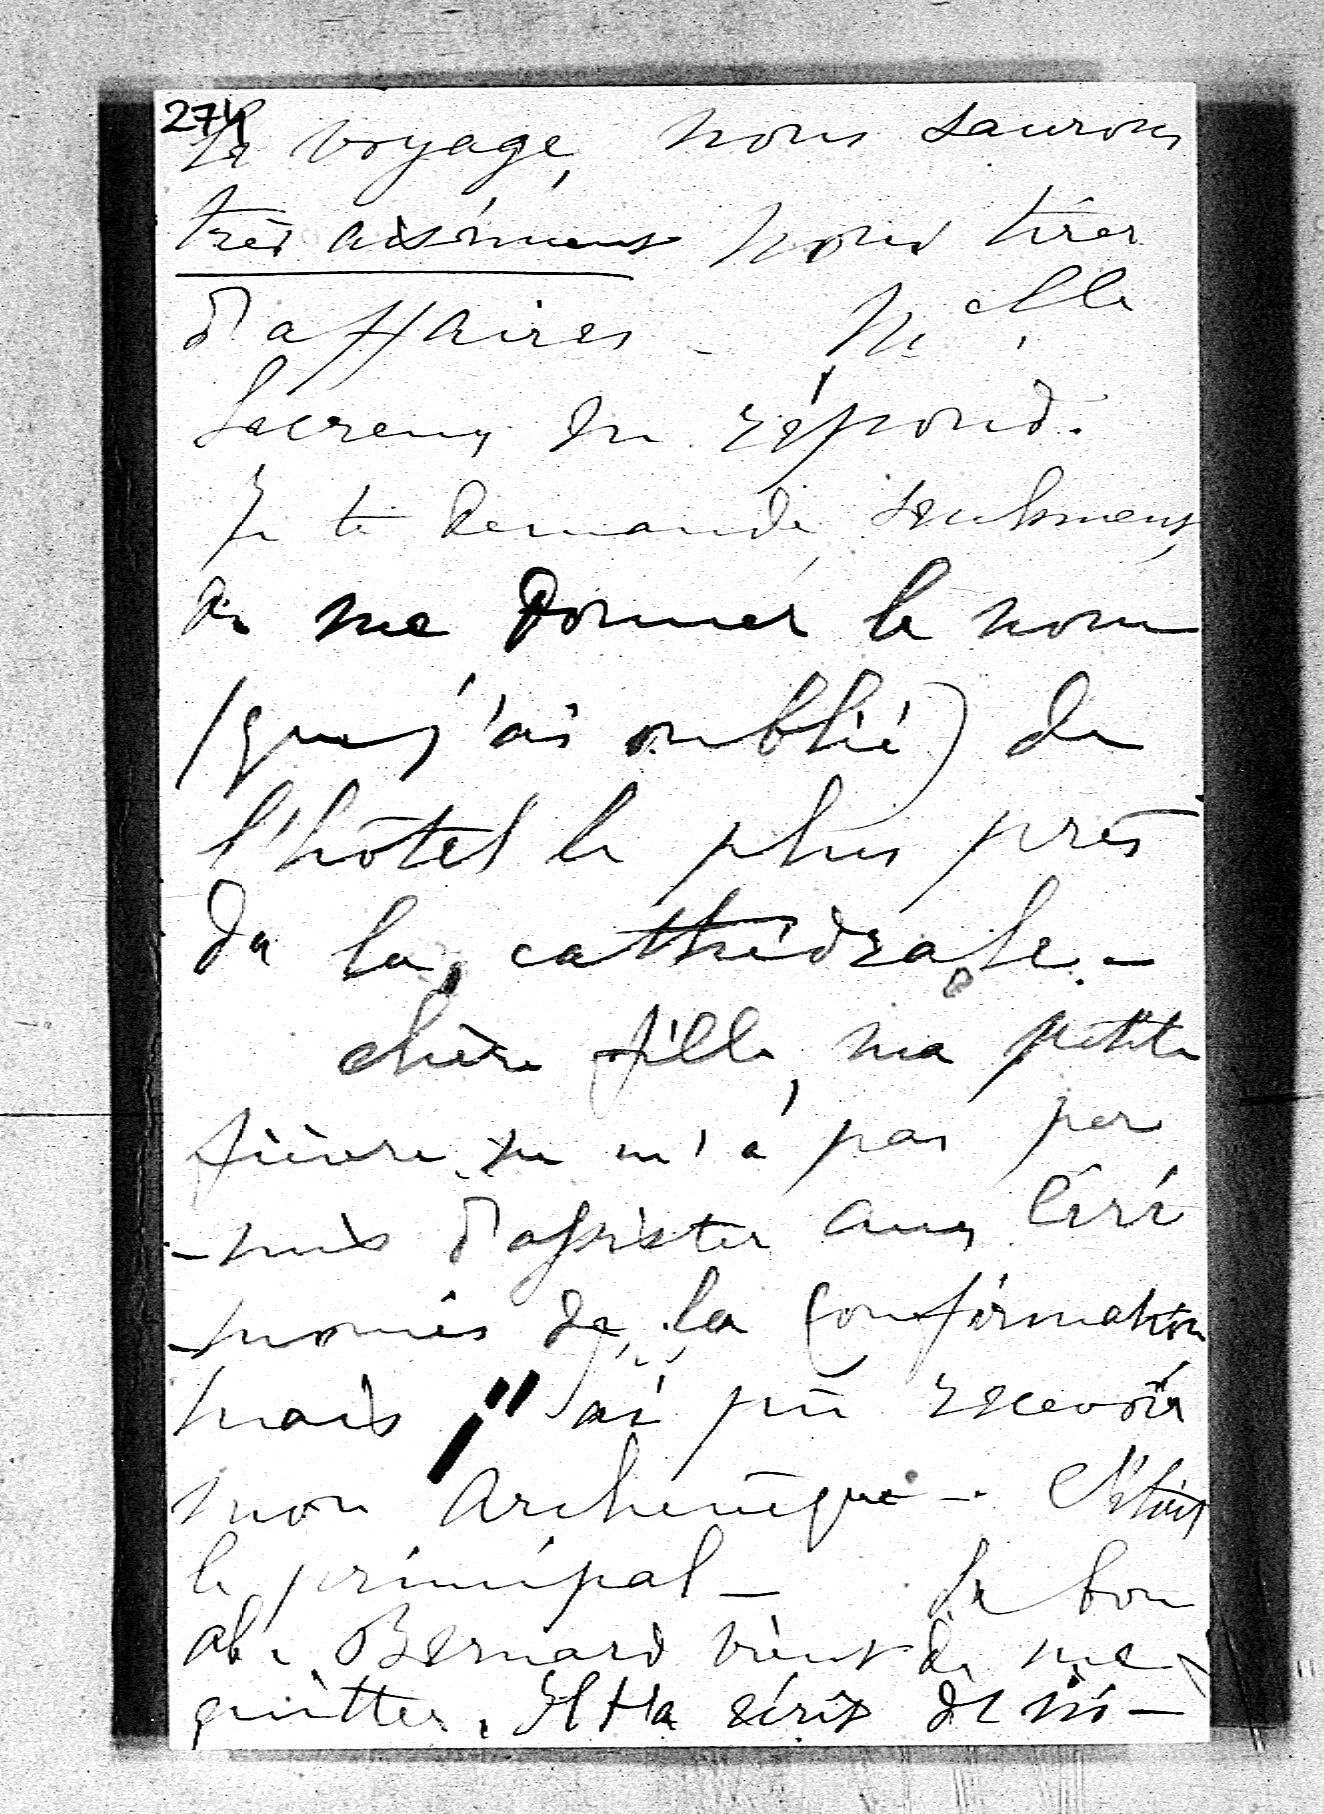 274
le voyage, nous saurons
très aisément nous tirer
d'affaires - Melle
Lacreuy en répond.
Je te demande seulement,
de me donner le nom
(que j'ai oublié) de
l'hôtel le plus près
de la cathédrale. -
chère fille, ma petite
fièvre ne m'a pas per
-mis d'assister aux céré
-monies de la Confirmation
mais j'ai pû recevoir
mon Archevêque - C'était
le principal - Le bon
ab. Bernard vient de me
quitter. Il t'a écrit de ve-